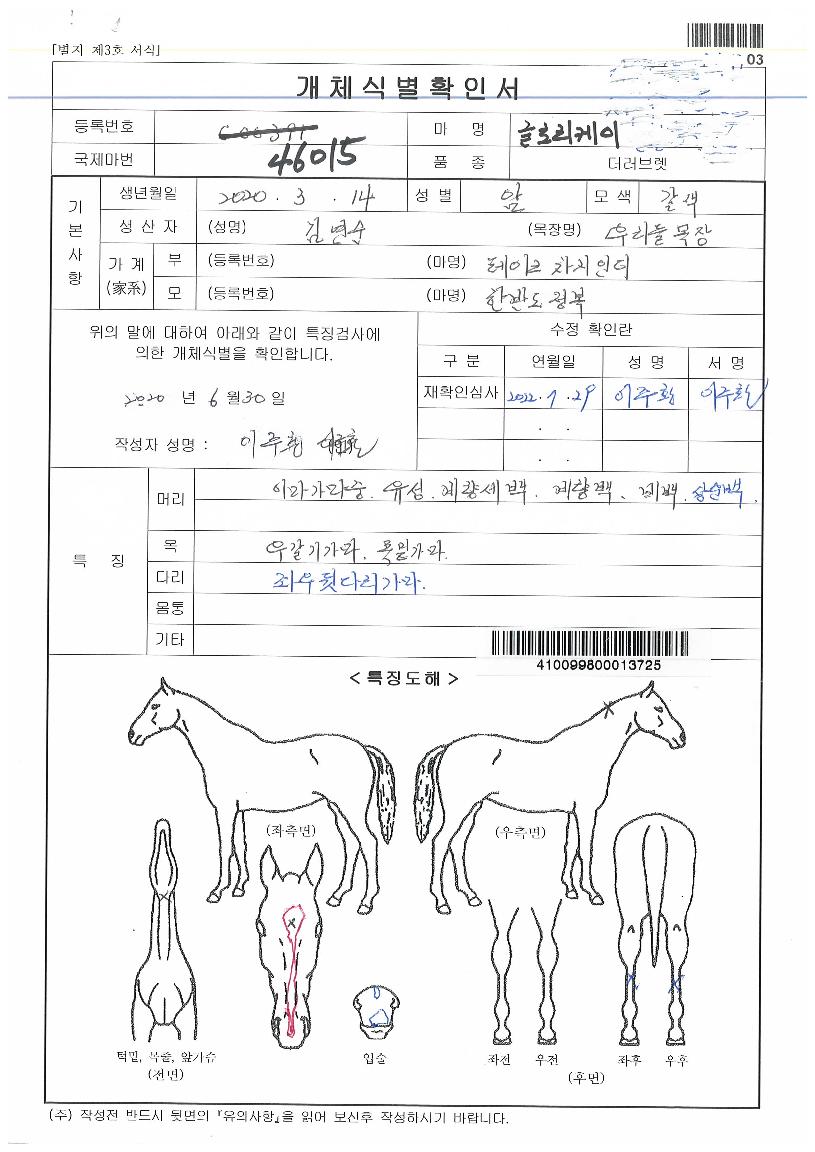 [별지 제3호 서식]
03
개체식별확인서
등록번호
국제마번 46015
마 명 글로리케이
품 종 더러브렛
기본사항
생년월일 2020 . 3 . 14 성 별 암 모 색 갈색
성 산 자 (성명) 김연수 (목장명) 우리들목장
가 계 (家系)
부 (등록번호) (마명) 테이크차지인디
모 (등록번호) (마명) 한반도평복
위의 말에 대하여 아래와 같이 특징검사에
의한 개체식별을 확인합니다.
2020 년 6 월 30 일
작성자 성명 : 이주환
수정 확인란
구 분 연월일 성 명 서 명
재확인심사 2022 . 7 . 29 이주환 이주환
. .
. .
특 징
머리 이마가마중. 유성. 계량세백. 계량백. 비백. 상순백.
목 우갈기가마. 목밑가마.
다리 좌우뒷다리가마.
몸통
기타
410099800013725
< 특징도해 >
(좌측면) (우측면)
턱밑, 목줄, 앞가슴 입술 좌전 우전 좌후 우후
(전면) (후면)
(주) 작성전 반드시 뒷면의 『유의사항』을 읽어 보신후 작성하시기 바랍니다.